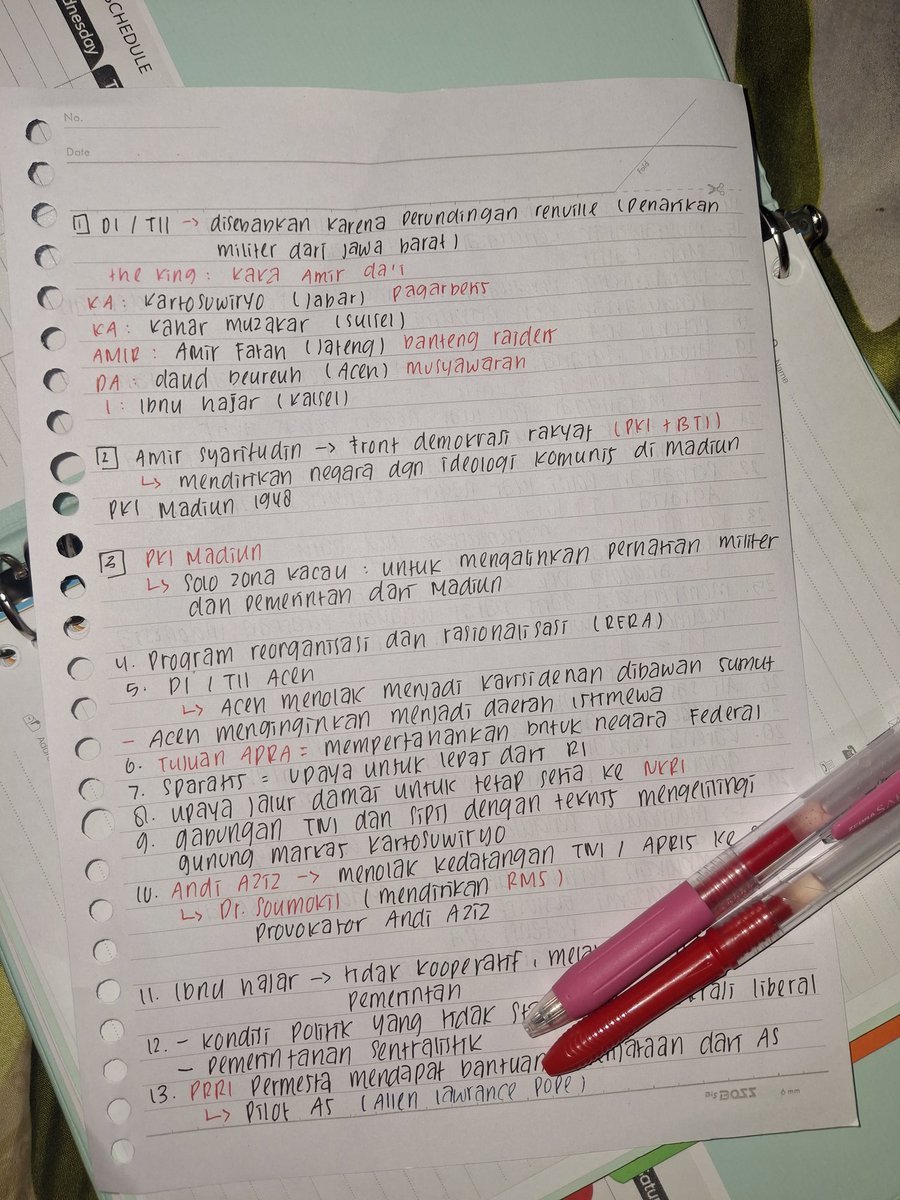 SCHEDULE
dnesday
No.
Date
Fold
1 DI / TII → disebabkan karena perundingan renville (penarikan
militer dari jawa barat)
the king : kaka Amir da'i
KA : kartosuwiryo (jabar) pagarbetis
KA : kahar muzakar (sulsel)
AMIR : Amir Fatah (jateng) banteng raiders
DA : daud beureuh (Aceh) musyawarah
I : Ibnu hajar (kalsel)
2 Amir syarifudin → front demokrasi rakyat (PKI + BTI)
↳ mendirikan negara dgn ideologi komunis di madiun
PKI Madiun 1948
3 PKI Madiun
↳ Solo zona kacau : untuk mengalihkan perhatian militer
dan pemerintah dari Madiun
4. Program reorganisasi dan rasionalisasi (RERA)
5. DI / TII Aceh
↳ Aceh menolak menjadi karisidenan dibawah sumut
- Aceh menginginkan menjadi daerah istimewa
6. Tujuan APRA = mempertahankan bntuk negara Federal
7. Sparatis = upaya untuk lepas dari RI
8. upaya jalur damai untuk tetap setia ke NKRI
9. gabungan TNI dan sipil dengan teknis mengelilingi
gunung markas kartosuwiryo
10. Andi Aziz → menolak kedatangan TNI / APRIS ke
↳ Dr. Soumokil (mendirikan RMS)
Provokator Andi Aziz
11. Ibnu hajar → tidak kooperatif,
pemerintah
12. - kondisi politik yang tidak liberal
- pemerintahan sentralistik
13. PRRI Permesta mendapat bantuan dari AS
↳ pilot AS (Allen lawrance pope)
BOSS 6 mm
Name